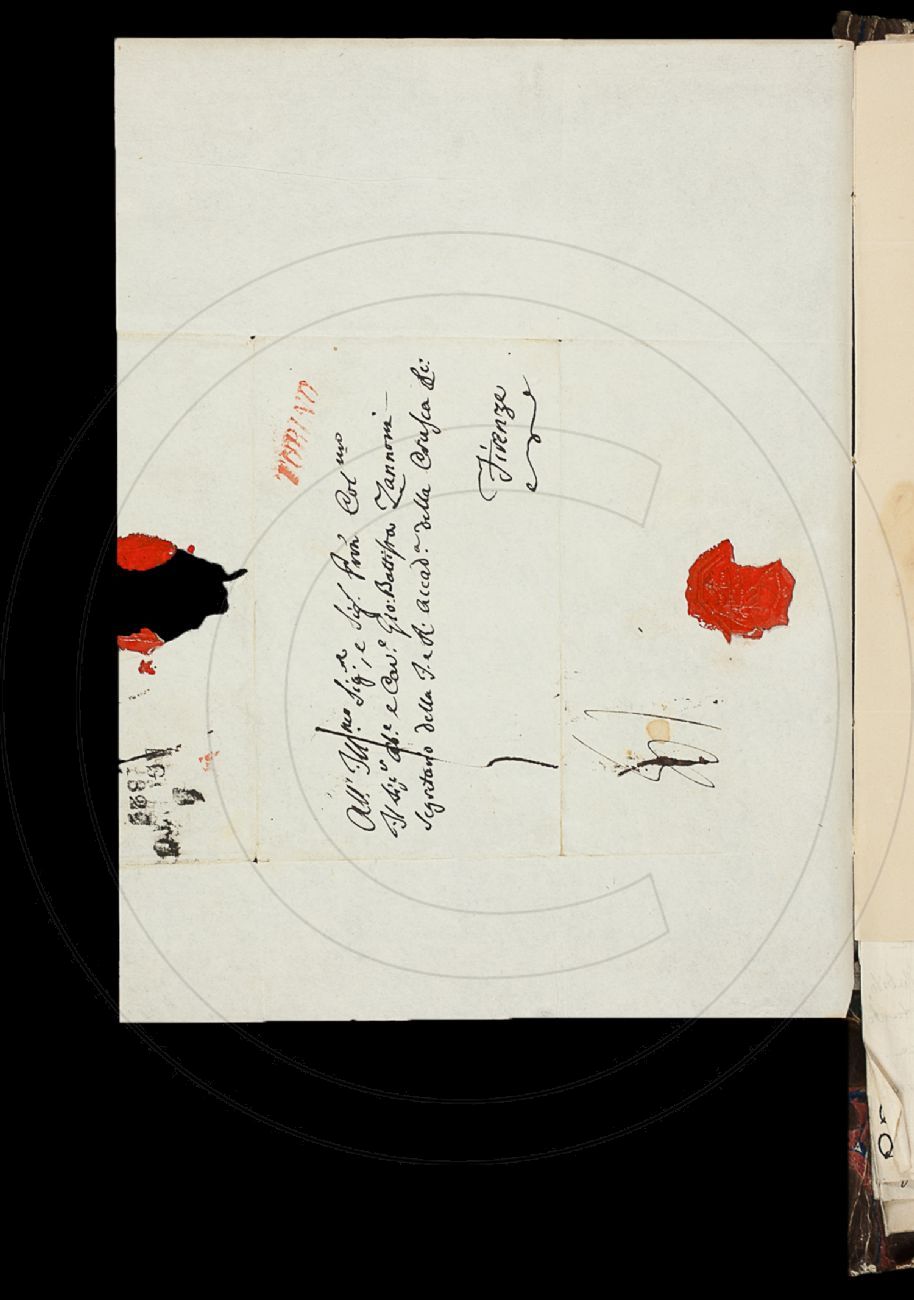 TORINO
All' Ill.mo Sig.re, e Sig. Pron Col mo
Il Sig.r Ab.e e Cav.e Gio: Battista Zannoni
Segretario della I. e R. Accad.a della Crusca &c:
Firenze
182